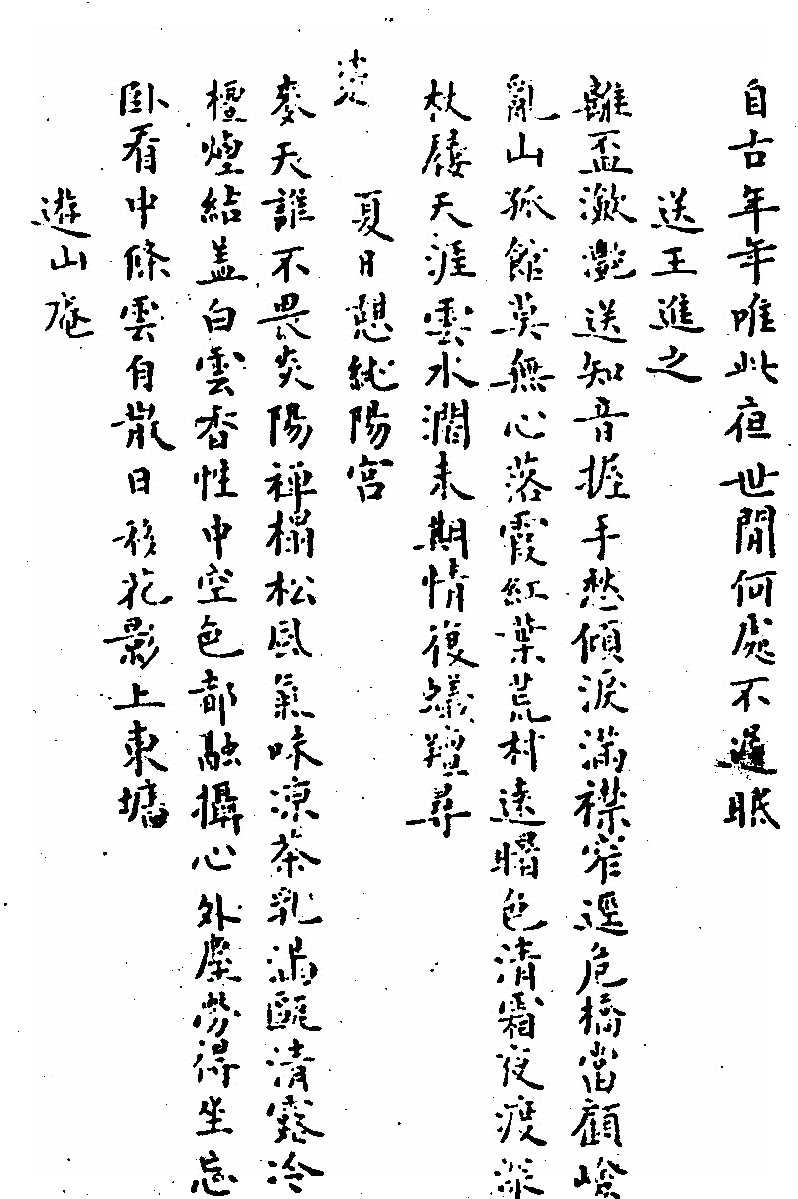 自古年年唯此夜世間何處不遲眠
送王進之
離盃瀲灧送知音握手愁傾淚滿襟窄逕危橋當顧嶮
亂山孤館莫無心落霞紅葉荒村遠曙色清霜夜渡深
杖屨天涯雲水濶未期情復蟻羶尋
夏日憩純陽宮
麥天誰不畏炎陽禅榻松風氣味凉茶乳滿甌清露冷
檀煙結盖白雲香性中空色都融攝心外塵勞得坐忘
卧看中條雲自散日移花影上東墻
遊山庵